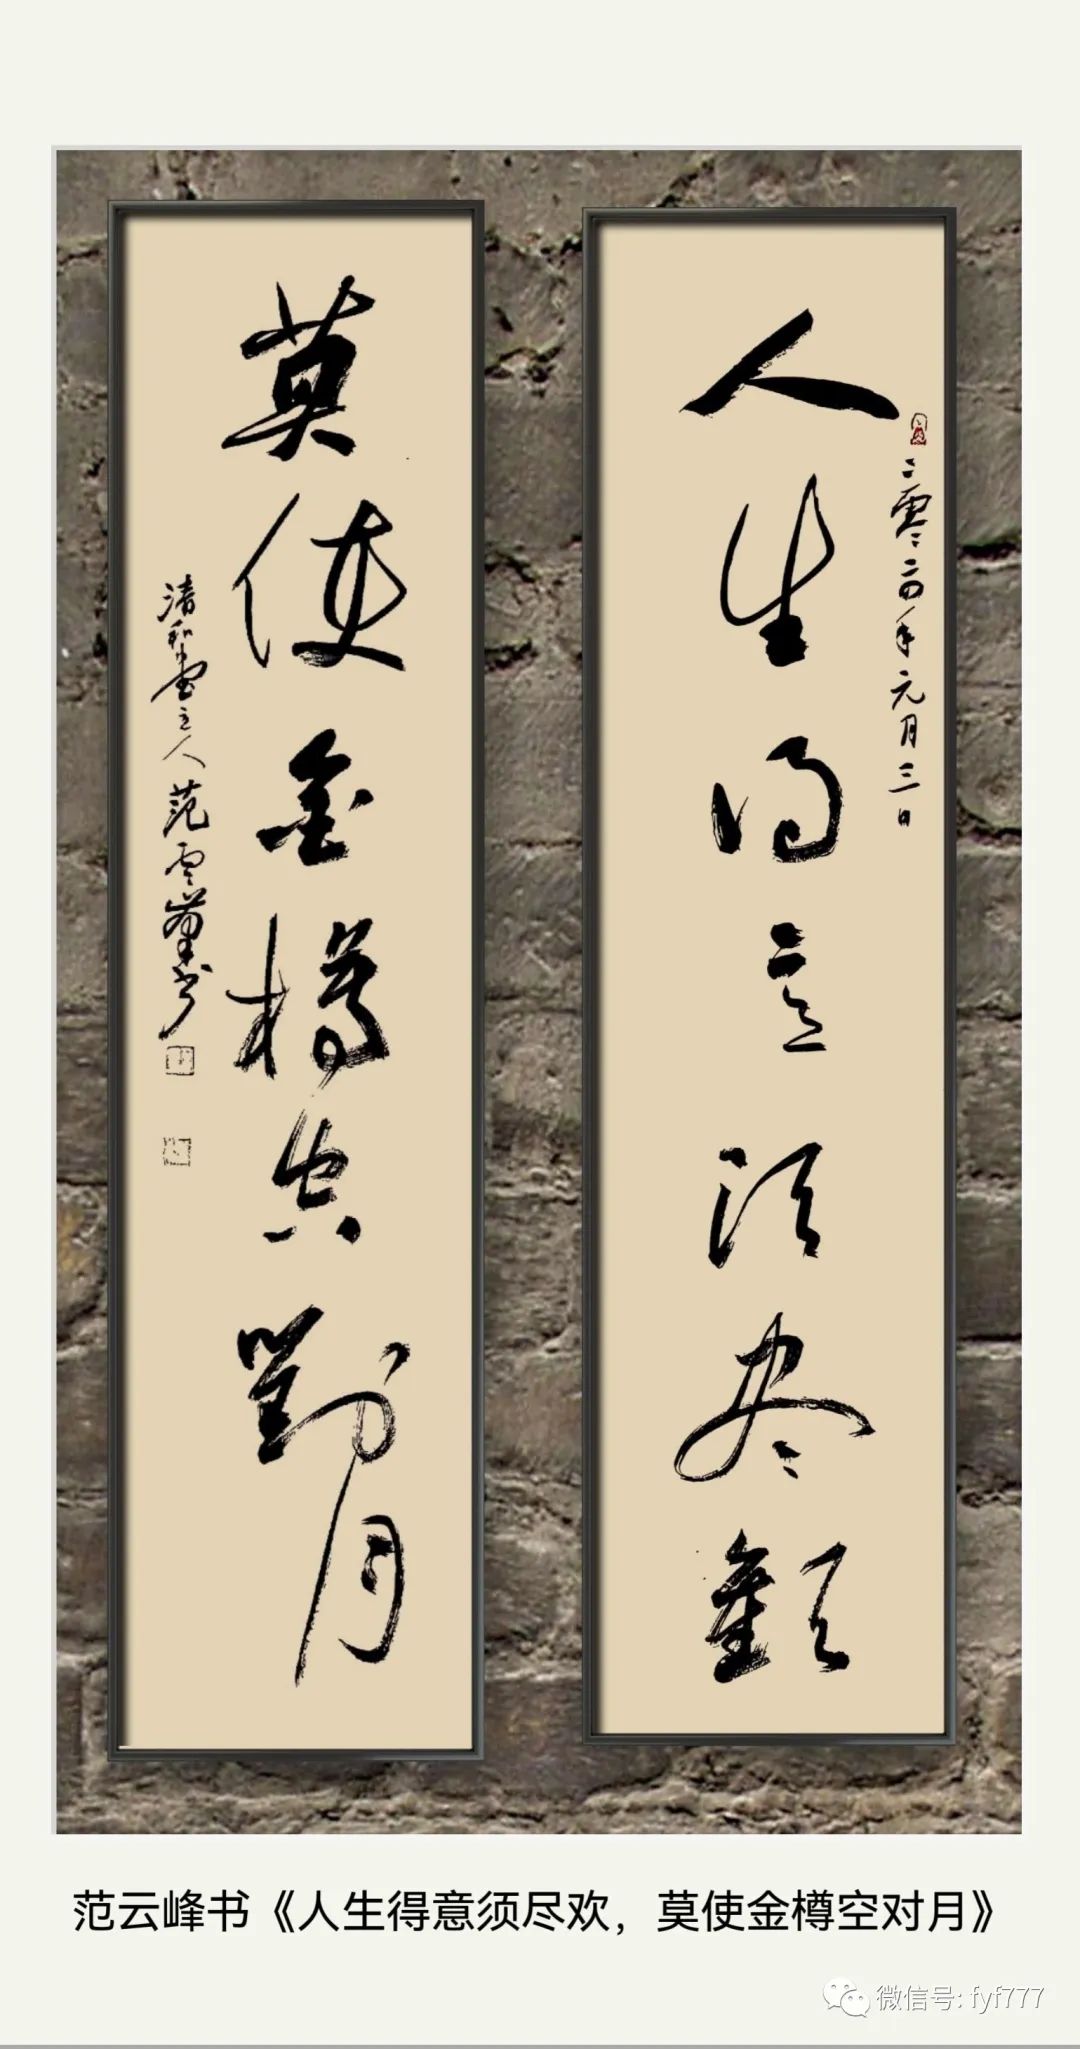 人生得意须尽欢
二零二四年元月三日
莫使金樽空对月
清和堂主人范云峰书
范云峰书《人生得意须尽欢，莫使金樽空对月》
微信号: fyf777